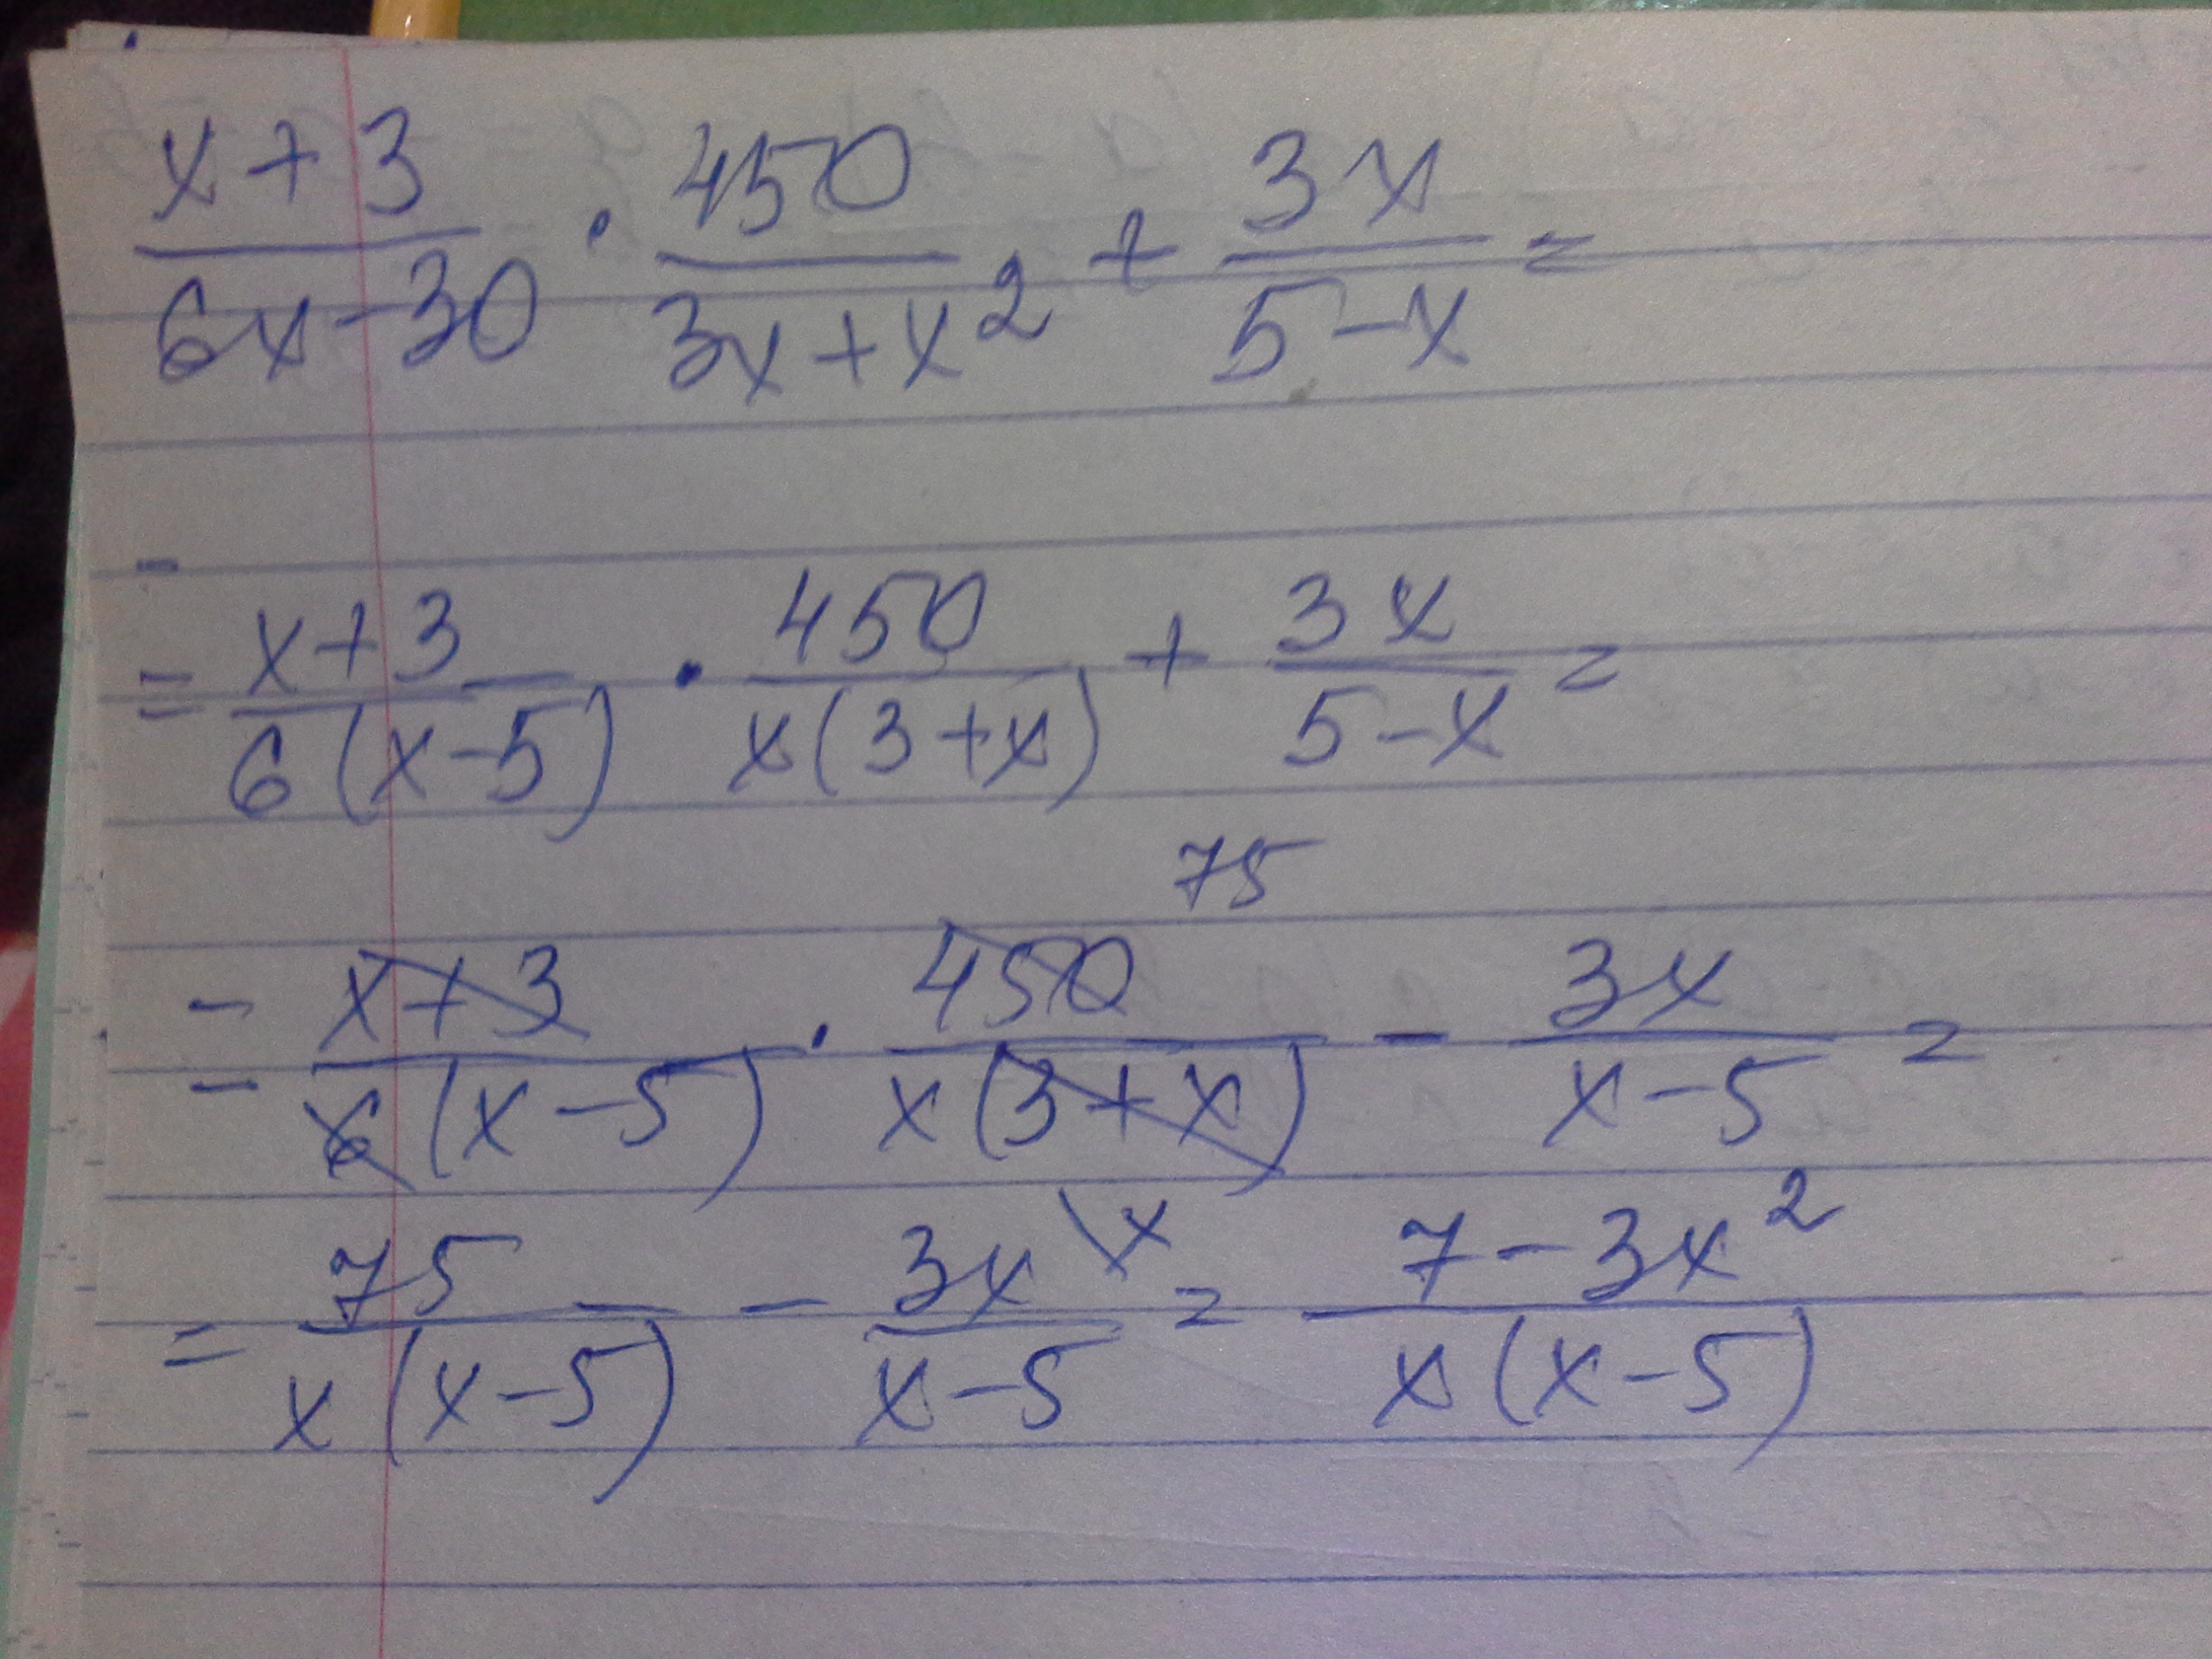 (x+3)/(6x-30) · 450/(3x+x²) + 3x/(5-x) =
= (x+3)/(6(x-5)) · 450/(x(3+x)) + 3x/(5-x) =
75
= (x+3)/(6(x-5)) · 450/(x(3+x)) - 3x/(x-5) =
= 75/(x(x-5)) - 3x\x/(x-5) = (7-3x²)/(x(x-5))